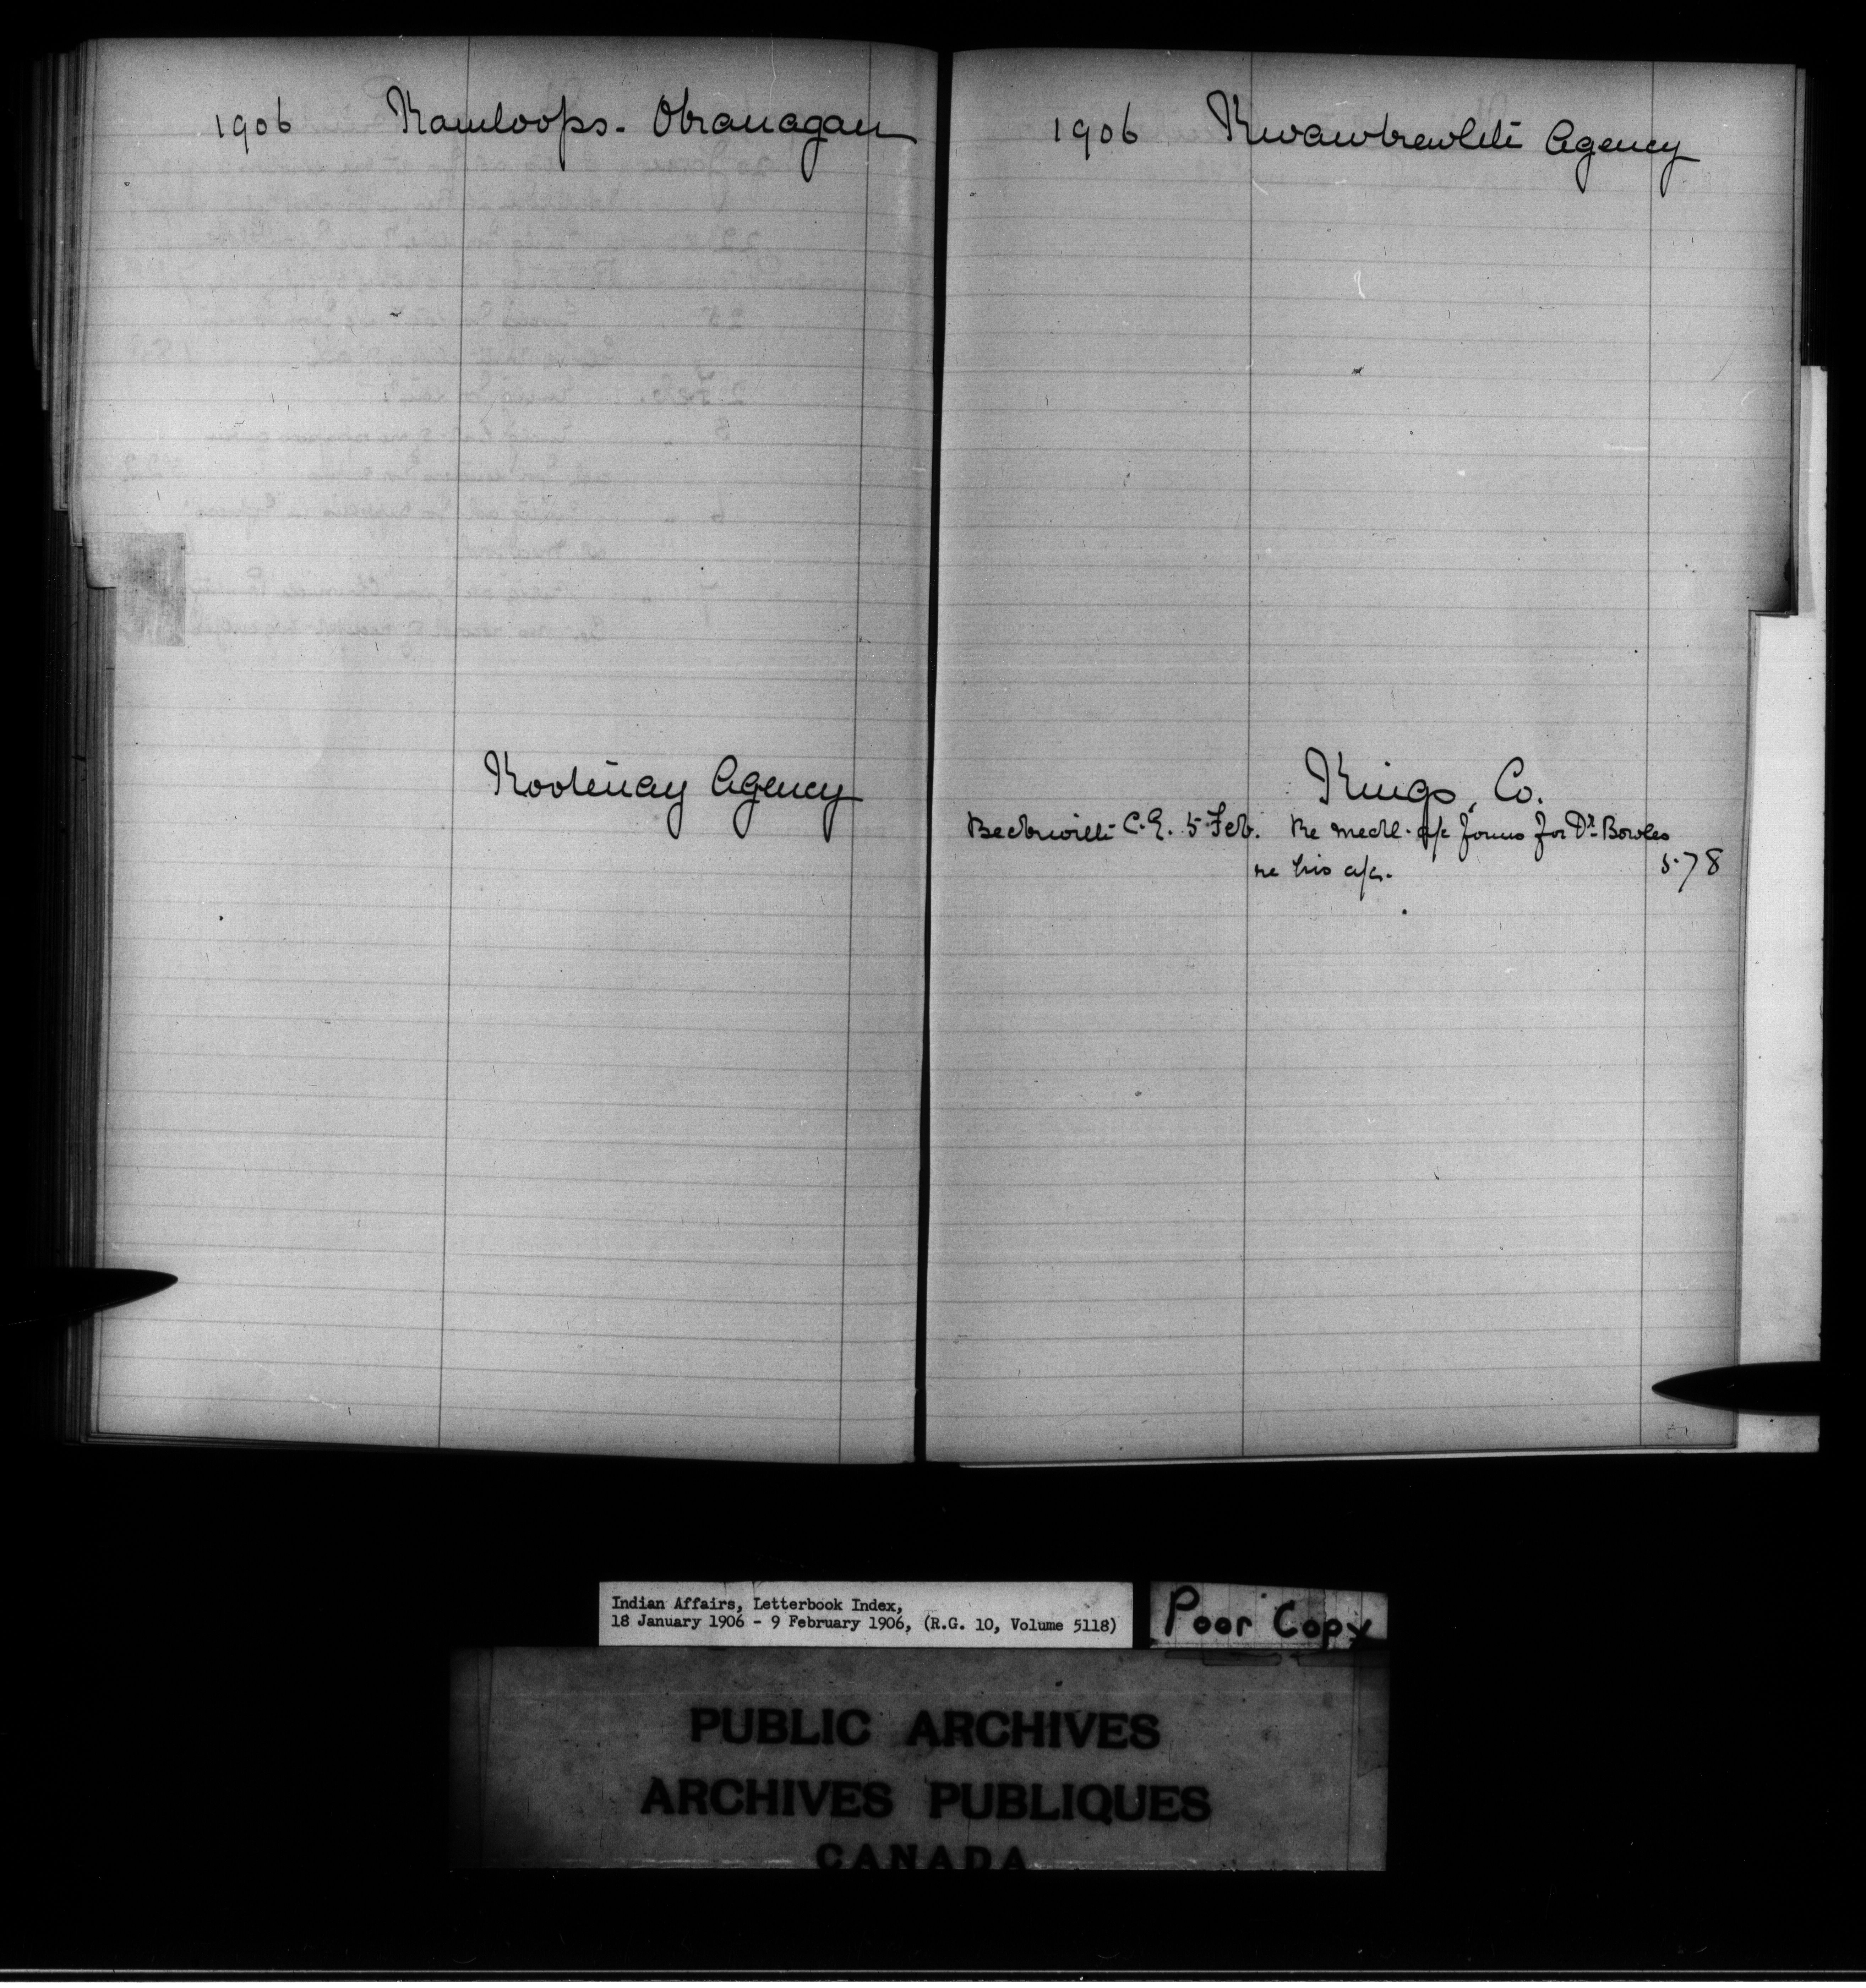 1906 Kamloops - Okanagan
Kootenay Agency
1906 Kwawkewlth Agency
Kings, Co.
Beckwith C.E. 5 Feb. Re medl. a/c forms for Dr. Bowles
re his a/c. 578
Indian Affairs, Letterbook Index,
18 January 1906 - 9 February 1906, (R.G. 10, Volume 5118)
Poor Copy
PUBLIC ARCHIVES
ARCHIVES PUBLIQUES
CANADA